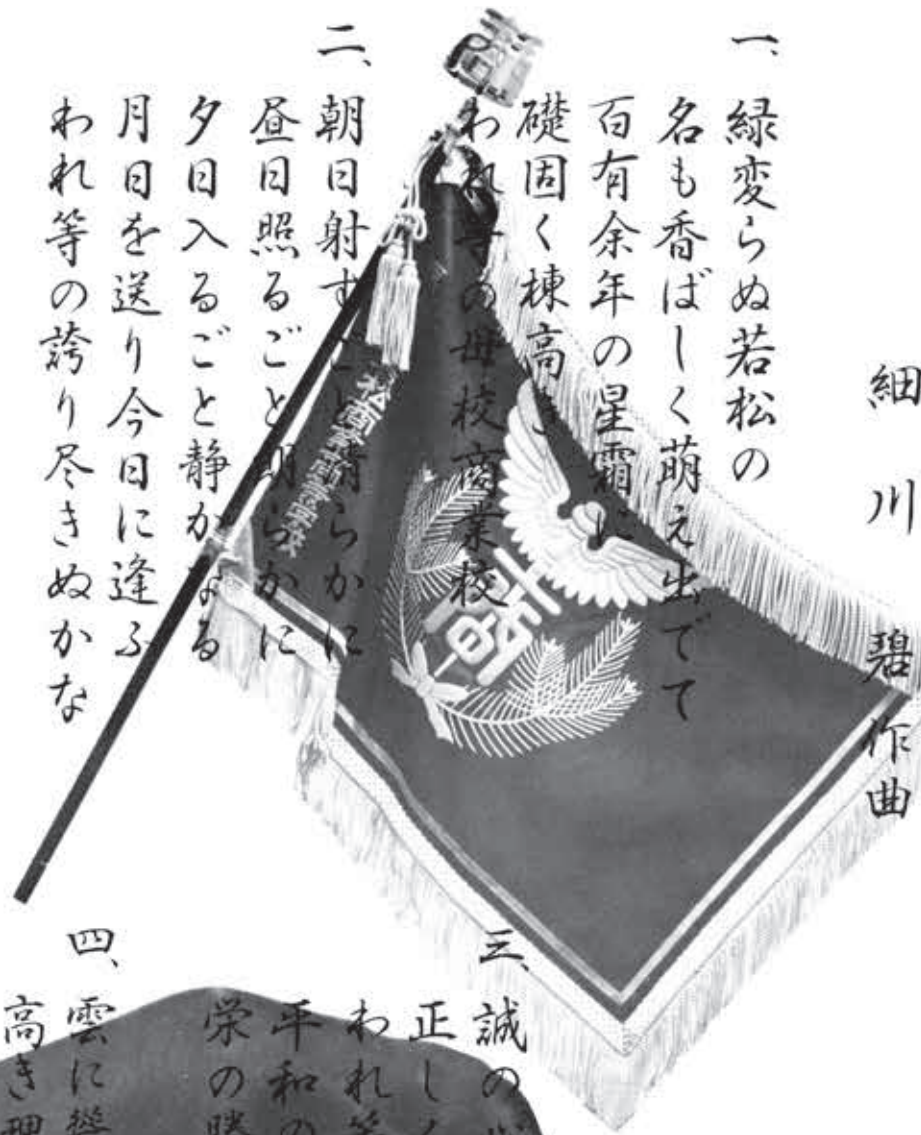 細川碧作曲
一、緑変らぬ若松の
名も香ばしく萌え出でて
百有余年の星霜に
礎固く棟高き
われ等の母校商業校
二、朝日射すごと清らかに
昼日照るごと明らかに
夕日入るごと静かなる
月日を送り今日に逢ふ
われ等の誇り尽きぬかな
三、誠の
正し
われ等
平和の
栄の
四、雲に
高き理